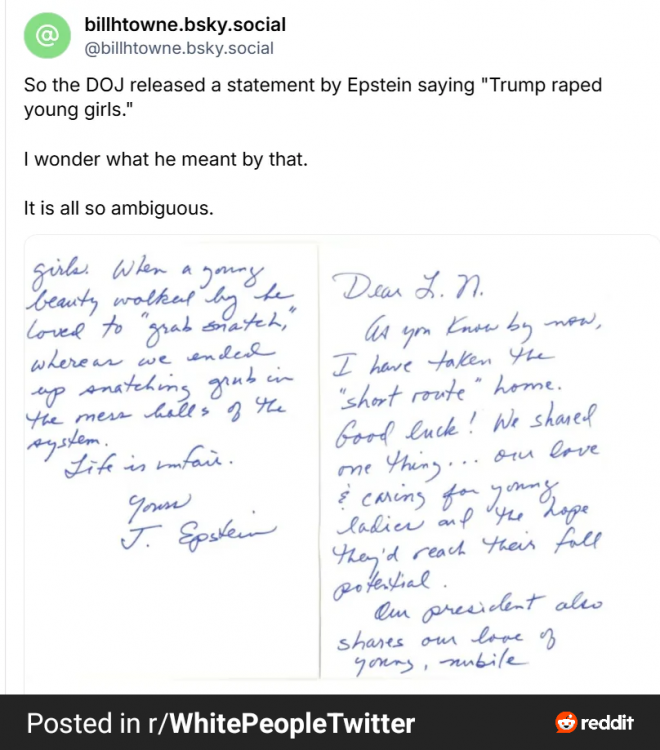 billhtowne.bsky.social
@billhtowne.bsky.social
So the DOJ released a statement by Epstein saying "Trump raped
young girls."
I wonder what he meant by that.
It is all so ambiguous.
Dear L.N.
As you know by now,
I have taken the
"short route" home.
Good luck! We shared
one thing... our love
& caring for young
ladies and the hope
they'd reach their full
potential.
Our president also
shares our love of
young, nubile
girls. When a young
beauty walked by he
loved to "grab snatch,"
whereas we ended
up snatching grub in
the mess halls of the
system.
Life is unfair.
Yours
J. Epstein
Posted in r/WhitePeopleTwitter
reddit